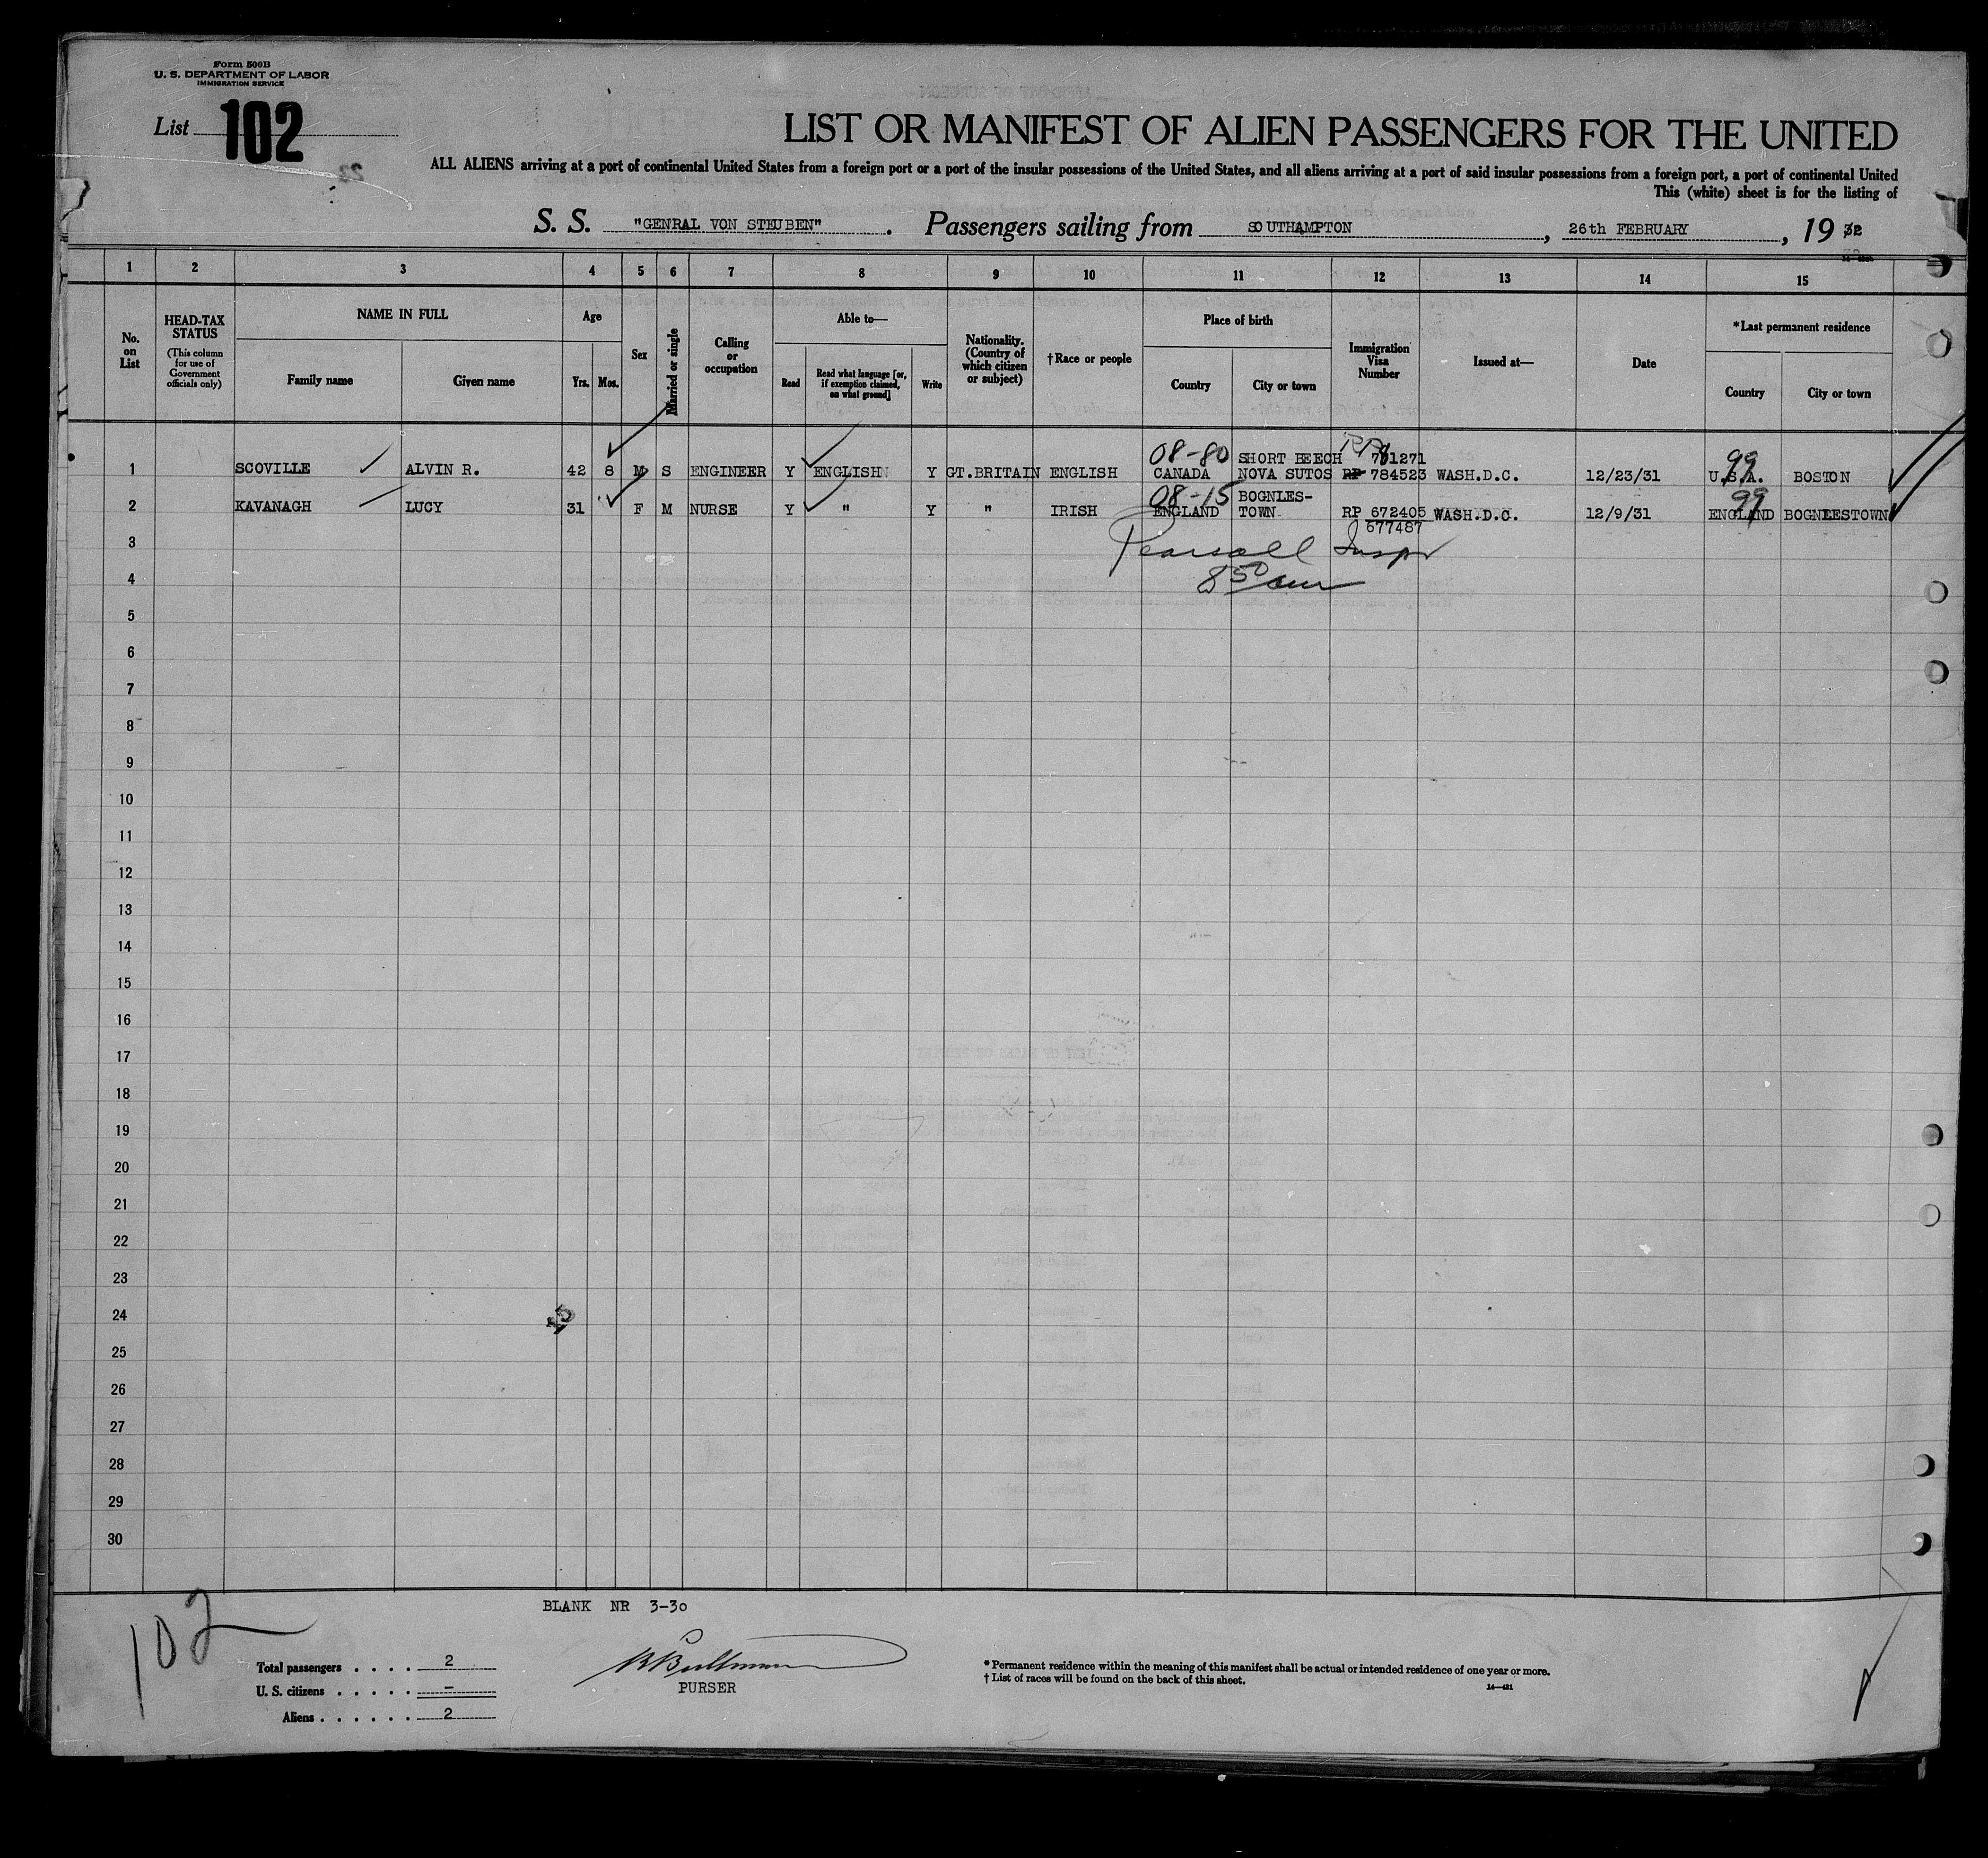 Form 500B
U. S. DEPARTMENT OF LABOR
IMMIGRATION SERVICE
List 102
LIST OR MANIFEST OF ALIEN PASSENGERS FOR THE UNITED
ALL ALIENS arriving at a port of continental United States from a foreign port or a port of the insular possessions of the United States, and all aliens arriving at a port of said insular possessions from a foreign port, a port of continental United
This (white) sheet is for the listing of
S. S. "GENRAL VON STEUBEN". Passengers sailing from SOUTHAMPTON, 26th FEBRUARY, 19 32
1 2 3 4 5 6 7 8 9 10 11 12 13 14 15
No. on List
HEAD-TAX STATUS (This column for use of Government officials only)
NAME IN FULL
Family name
Given name
Age
Yrs. Mos.
Sex
Married or single
Calling or occupation
Able to—
Read
Read what language [or, if exemption claimed, on what ground]
Write
Nationality. (Country of which citizen or subject)
†Race or people
Place of birth
Country
City or town
Immigration Visa Number
Issued at—
Date
*Last permanent residence
Country
City or town
08-80 SHORT BEECH 781271 99
1 SCOVILLE ALVIN R. 42 8 M S ENGINEER Y ENGLISH Y GT.BRITAIN ENGLISH CANADA NOVA SUTOS RP 784523 WASH.D.C. 12/23/31 U.S.A. BOSTON
08-15 BOGNLES- 99
2 KAVANAGH LUCY 31 F M NURSE Y " Y " IRISH ENGLAND TOWN RP 672405 WASH.D.C. 12/9/31 ENGLAND BOGNLESTOWN
677487
3 Pearsall Inspr
4 8 50 am
5
6
7
8
9
10
11
12
13
14
15
16
17
18
19
20
21
22
23
24
25
26
27
28
29
30
BLANK NR 3-30
102
Total passengers . . . . 2
U. S. citizens . . . . . –
Aliens . . . . . . 2
PURSER
* Permanent residence within the meaning of this manifest shall be actual or intended residence of one year or more.
† List of races will be found on the back of this sheet.
14—421